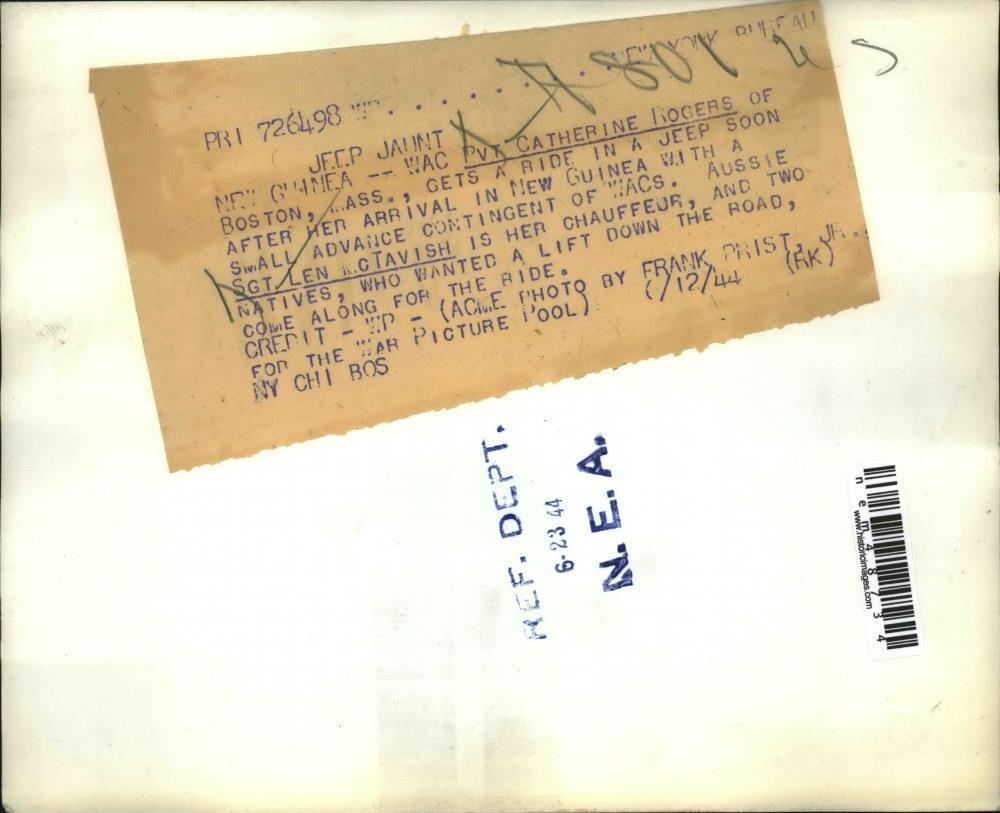 PRI 726498 WP . . . . . . . . NEW YORK BUREAU
JEEP JAUNT
NEW GUINEA -- WAC PVT CATHERINE ROGERS OF
BOSTON, MASS., GETS A RIDE IN A JEEP SOON
AFTER HER ARRIVAL IN NEW GUINEA WITH A
SMALL ADVANCE CONTINGENT OF WACS. AUSSIE
SGT LEN MCTAVISH IS HER CHAUFFEUR, AND TWO
NATIVES, WHO WANTED A LIFT DOWN THE ROAD,
COME ALONG FOR THE RIDE.
CREDIT - WP - (ACME PHOTO BY FRANK PRIST, JR.,
FOR THE WAR PICTURE POOL) 6/12/44 (RK)
NY CHI BOS
REF. DEPT.
6-23 44
N. E. A.
nem48734
www.historicimages.com